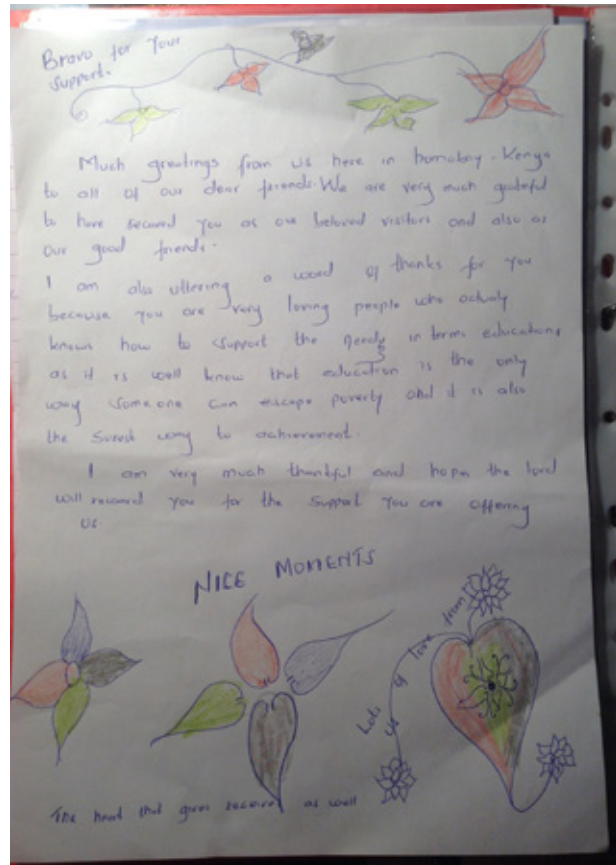 Bravo for Your
Support.
Much greetings from us here in homabay - Kenya
to all of our dear friends. We are very much grateful
to have secured you as our beloved visitors and also as
our good friends.
I am also uttering a word of thanks for you
because you are very loving people who actualy
known how to support the needy in terms education,
as it is well know that education is the only
way someone can escape poverty and it is also
the surest way to achievement.
I am very much thankful and hope the lord
will reward you for the support you are offering
us.
NICE MOMENTS
Lots of love from
us
The heart that gives receives as well